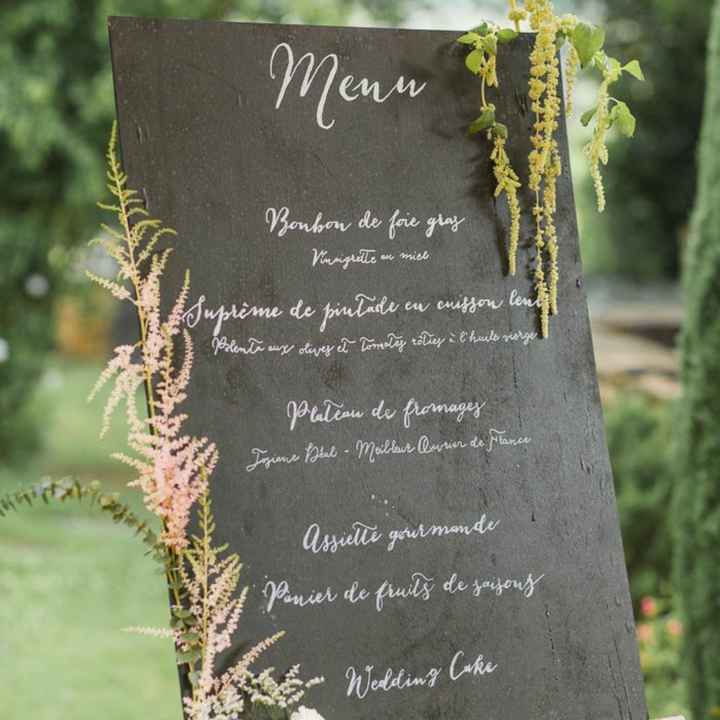 Menu
Bonbon de foie gras
Vinaigrette au miel
Suprême de pintade en cuisson lent
Polenta aux olives et tomates rôties à l'huile vierge
Plateau de fromages
Josiane Déal - Meilleur Ouvrier de France
Assiette gourmande
Panier de fruits de saisons
Wedding Cake